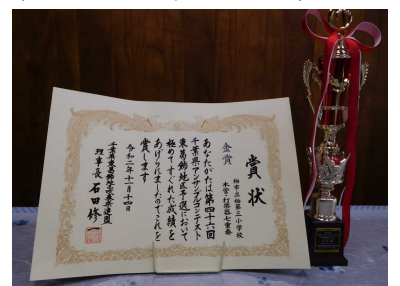 賞状
金賞
柏市立柏第三小学校
木管・打楽器七重奏
あなたがたは第四十六回
千葉県アンサンブルコンテスト
東葛飾地区予選において
極めてすぐれた成績を
あげられましたのでこれを
賞します
令和二年十一月十四日
千葉県東葛飾地区吹奏楽連盟
理事長 石田修一